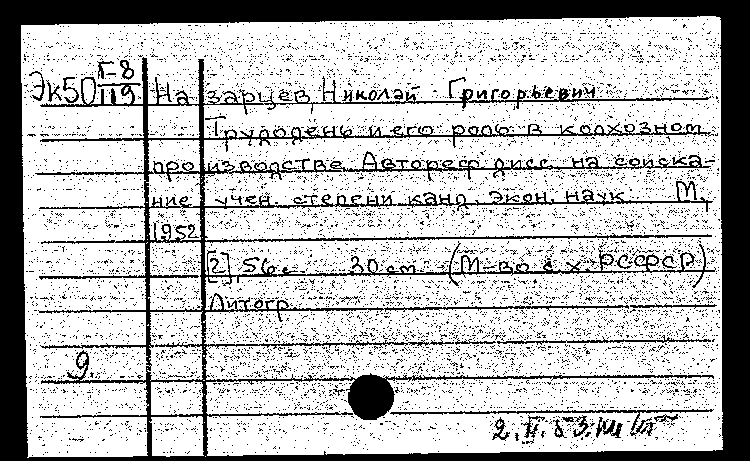 Эк50 Г-8
119
Назарцев, Николай Григорьевич
Трудодень и его роль в колхозном
производстве. Автореф. дисс. на соиска-
ние учен. степени канд. экон. наук. М.,
1952
[2], 56 с. 30 см. (М-во с. х. РСФСР)
Литогр.
9.
2.II.53.